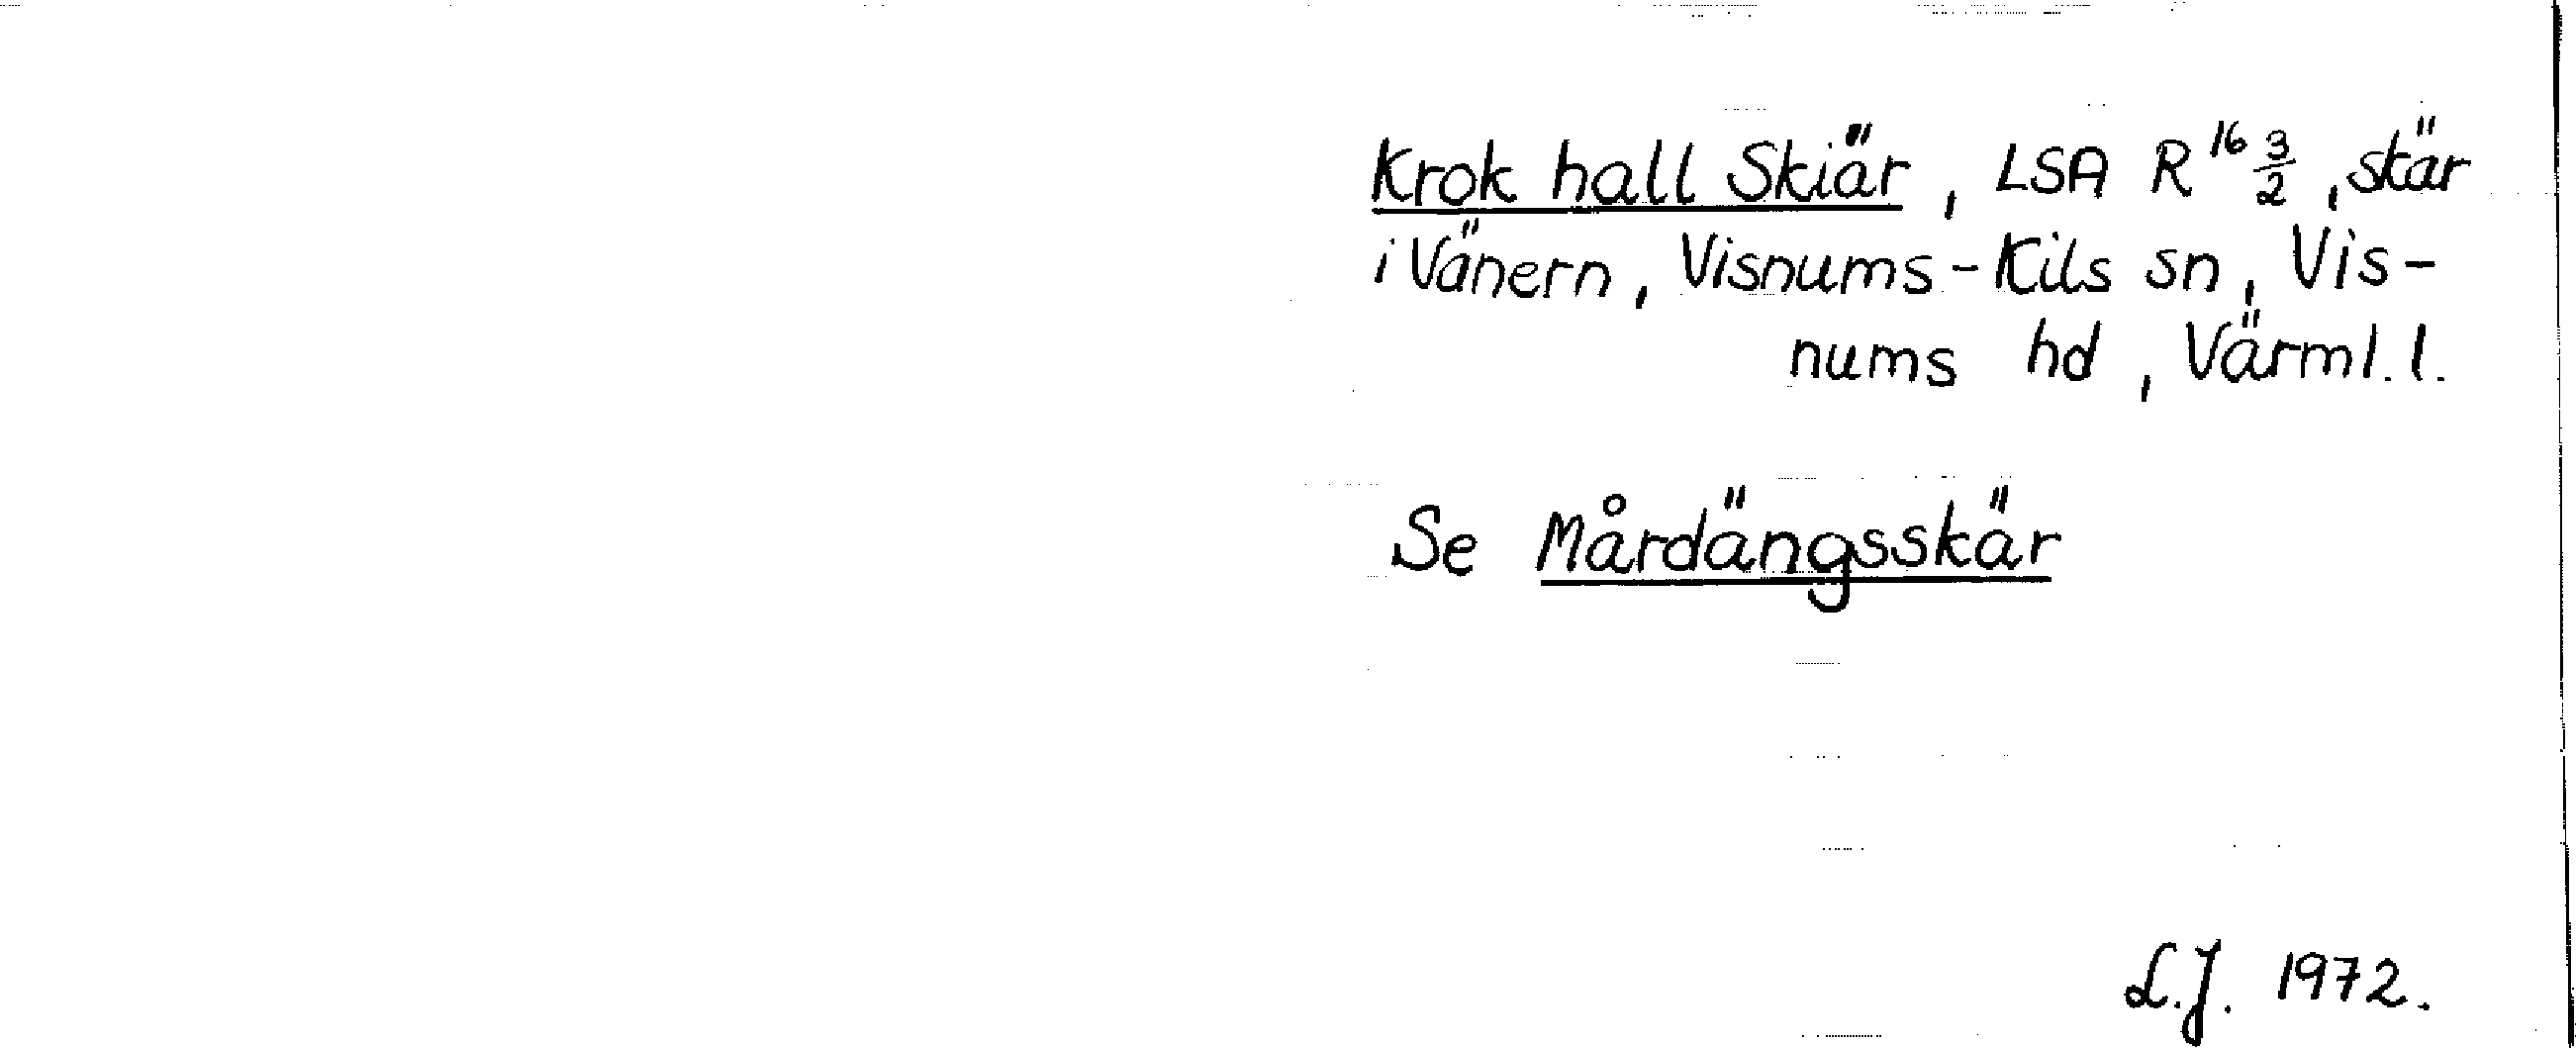 Krok hall Skiär, LSA R¹⁶ 3/2, skär
i Vänern, Visnums-Kils sn, Vis-
nums hd, Värml. l.
Se Mårdängsskär
L.J. 1972.